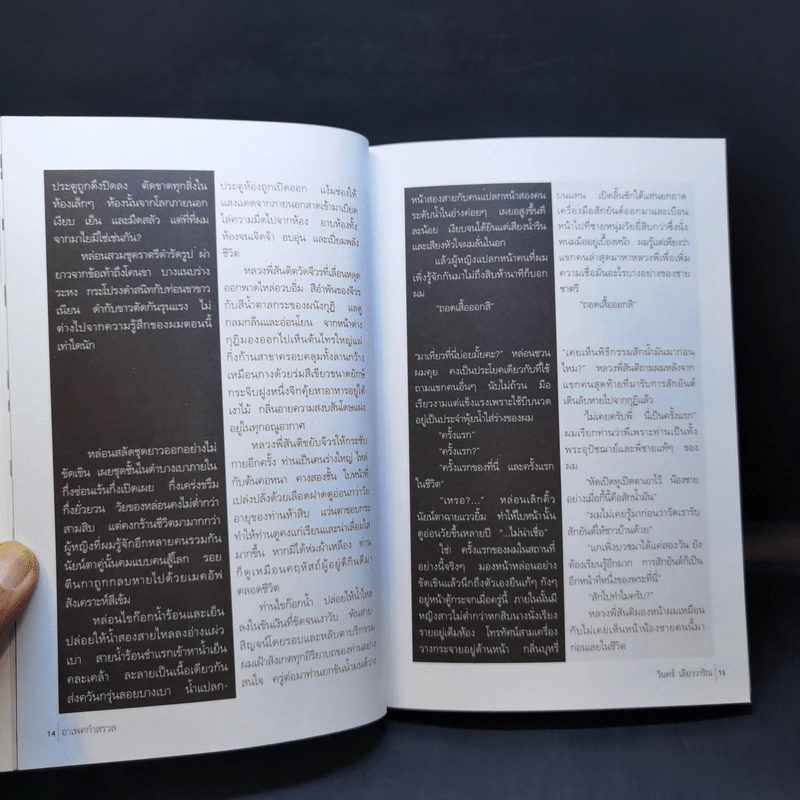 ประตูถูกดึงปิดลง ตัดขาดทุกสิ่งใน
ห้องเล็กๆ ห้องนั้นจากโลกภายนอก
เงียบ เย็น และมืดสลัว แต่ที่ที่ผม
จากมาไยมิใช่เช่นกัน?
หล่อนสวมชุดราตรีดำรัดรูป ผ่า
ยาวจากข้อเท้าถึงโคนขา บางแนบร่าง
ระหง กระโปรงดำสนิทกับท่อนขาขาว
เนียน ดำกับขาวตัดกันรุนแรง ไม่
ต่างไปจากความรู้สึกของผมตอนนี้
เท่าใดนัก
หล่อนสลัดชุดยาวออกอย่างไม่
ขัดเขิน เผยชุดชั้นในดำบางเบาภายใน
กึ่งซ่อนเร้นกึ่งเปิดเผย กึ่งเคร่งขรึม
กึ่งยั่วยวน วัยของหล่อนคงไม่ต่ำกว่า
สามสิบ แต่คงกร้านชีวิตมามากกว่า
ผู้หญิงที่ผมรู้จักอีกหลายคนรวมกัน
นัยน์ตาคู่นั้นคมแบบคนสู้โลก รอย
ตีนกาถูกกลบหายไปด้วยเมคอัฟ
สังเคราะห์สีเข้ม
หล่อนไขก๊อกน้ำร้อนและเย็น
ปล่อยให้น้ำสองสายไหลลงอ่างแผ่ว
เบา สายน้ำร้อนชำแรกเข้าหาน้ำเย็น
คละเคล้า ละลายเป็นเนื้อเดียวกัน
ส่งควันกรุ่นลอยบางเบา น้ำแปลก-
ประตูห้องถูกเปิดออก แง้มช่องให้
แสงแดดจากภายนอกสาดเข้ามาเบียด
ไล่ความมืดไปจากห้อง อาบห้องทั้ง
ห้องจนเจิดจ้า อบอุ่น และเปี่ยมพลัง
ชีวิต
หลวงพี่สันติตวัดจีวรที่เลื่อนหลุด
ออกพาดไหล่อวบอิ่ม สีอำพันของจีวร
กับสีน้ำตาลกระของผนังกุฏิ แลดู
กลมกลืนและอ่อนโยน จากหน้าต่าง
กุฏิมองออกไปเห็นต้นไทรใหญ่แผ่
กิ่งก้านสาขาครอบคลุมทั้งลานกว้าง
เหมือนกางด้วยร่มสีเขียวขนาดยักษ์
กระจิบฝูงหนึ่งจิกคุ้ยหาอาหารอยู่ใต้
เงาไม้ กลิ่นอายความสงบสันโดษแฝง
อยู่ในทุกอณูอากาศ
หลวงพี่สันติขยับจีวรให้กระชับ
กายอีกครั้ง ท่านเป็นคนร่างใหญ่ ไหล่
กับต้นคอหนา คางสองชั้น ใบหน้าที่
เปล่งปลั่งด้วยเลือดฝาดดูอ่อนกว่าวัย
อายุของท่านห้าสิบ แว่นตาขอบกระ
ทำให้ท่านดูคงแก่เรียนและน่าเลื่อมใส
มากขึ้น หากมิได้ห่มผ้าเหลือง ท่าน
ก็ดูเหมือนคฤหัสถ์ผู้อยู่ดีกินดีมา
ตลอดชีวิต
ท่านไขก๊อกน้ำ ปล่อยให้น้ำไหล
ลงในขันเงินที่ขัดจนเงาวับ พันสาย
สิญจน์โดยรอบและหลับตาบริกรรม
ผมเฝ้าสังเกตทุกอิริยาบถของท่านอย่าง
สนใจ ครู่ต่อมาท่านยกขันน้ำมนต์วาง
14 อาเพศกำสรวล
หน้าสองสายกับคนแปลกหน้าสองคน
ระดับน้ำในอ่างค่อยๆ เผยอสูงขึ้นที
ละน้อย เงียบจนได้ยินแต่เสียงน้ำริน
และเสียงหัวใจผมเต้นในอก
แล้วผู้หญิงแปลกหน้าคนที่ผม
เพิ่งรู้จักกันมาไม่ถึงสิบห้านาทีก็บอก
ผม
“ถอดเสื้อออกสิ”
“มาเที่ยวที่นี่บ่อยมั้ยคะ?” หล่อนชวน
ผมคุย คงเป็นประโยคเดียวกับที่ใช้
ถามแขกคนอื่นๆ นับไม่ถ้วน มือ
เรียวงามแต่แข็งแรงเพราะใช้บีบนวด
อยู่เป็นประจำพุ้ยน้ำใส่ร่างของผม
“ครั้งแรก”
“ครั้งแรก?”
“ครั้งแรกของที่นี่ และครั้งแรก
ในชีวิต”
“เหรอ?...” หล่อนเลิกคิ้ว
นัยน์ตาฉายแววยิ้ม ทำให้ใบหน้านั้น
ดูอ่อนวัยขึ้นหลายปี “...ไม่น่าเชื่อ”
ใช่ ครั้งแรกของผมในสถานที่
อย่างนี้จริงๆ มองหน้าหล่อนอย่าง
ขัดเขินแล้วนึกถึงตัวเองยืนเก้ๆ กังๆ
อยู่หน้าตู้กระจกเมื่อครู่นี้ ภายในนั้นมี
หญิงสาวไม่ต่ำกว่าหกสิบนางนั่งเรียง
รายอยู่เต็มห้อง โทรทัศน์สามเครื่อง
วางกระจายอยู่ด้านหน้า กลิ่นบุหรี่
บนแท่น เปิดลิ้นชักใต้แท่นยกถาด
เครื่องมือสักยันต์ออกมาและเบือน
หน้าไปที่ชายหนุ่มวัยยี่สิบกว่าซึ่งนั่ง
พนมมืออยู่เบื้องหน้า ผมรู้แต่เพียงว่า
แขกคนล่าสุดมาหาหลวงพี่เพื่อเพิ่ม
ความเชื่อมั่นอะไรบางอย่างของชาย
ชาตรี
“ถอดเสื้อออกสิ”
“เคยเห็นพิธีกรรมสักน้ำมันมาก่อน
ไหม?” หลวงพี่สันติถามผมหลังจาก
แขกคนสุดท้ายที่มารับการสักยันต์
เดินลับหายไปจากกุฏิแล้ว
“ไม่เคยครับพี่ นี่เป็นครั้งแรก”
ผมเรียกท่านว่าพี่เพราะท่านเป็นทั้ง
พระอุปัชฌาย์และพี่ชายแท้ๆ ของ
ผม
“หัดเปิดหูเปิดตาเอาไว้ น้องชาย
อย่างเมื่อกี้นี้คือสักน้ำมัน”
“ผมไม่เคยรู้มาก่อนว่าวัดเรารับ
สักยันต์ให้ชาวบ้านด้วย”
“แกเพิ่งบวชมาได้แค่สองวัน ยัง
ต้องเรียนรู้อีกมาก การสักยันต์ก็เป็น
อีกหน้าที่หนึ่งของพระที่นี่”
“สักไปทำไมครับ?”
หลวงพี่สันติมองหน้าผมเหมือน
กับไม่เคยเห็นหน้าน้องชายคนนี้มา
ก่อนเลยในชีวิต
วินทร์ เลียววาริณ 15